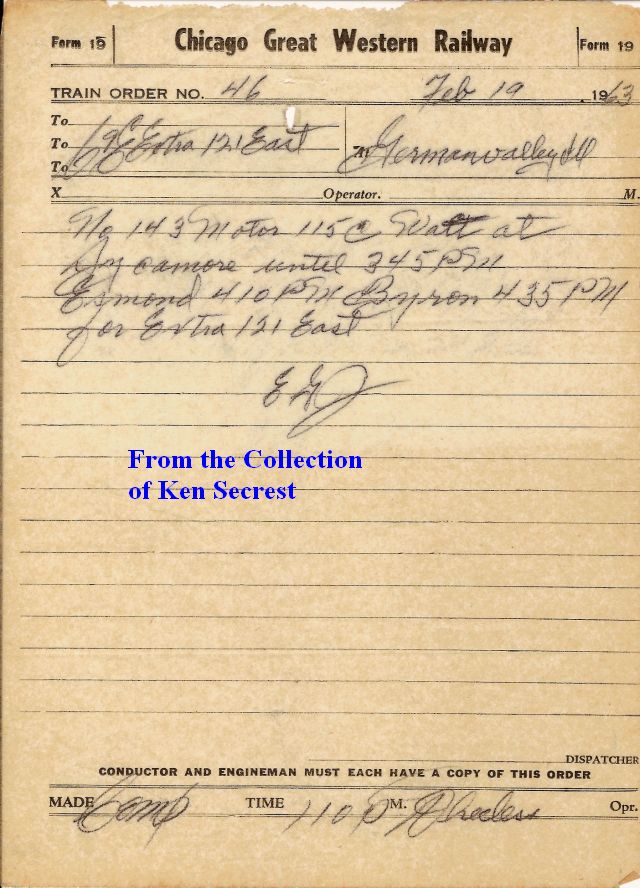 Form 19 Chicago Great Western Railway Form 19
TRAIN ORDER NO. 46 Feb 19 1963
To
To C&E Extra 121 East At Germanvalley Ill
To
X Operator. M.
No 143 Motor 115C Wait at
Sycamore until 345 PM
Esmond 410 PM Byron 435 PM
for Extra 121 East
From the Collection
of Ken Secrest
DISPATCHER
CONDUCTOR AND ENGINEMAN MUST EACH HAVE A COPY OF THIS ORDER
MADE Comp TIME 110 P M. Opr.